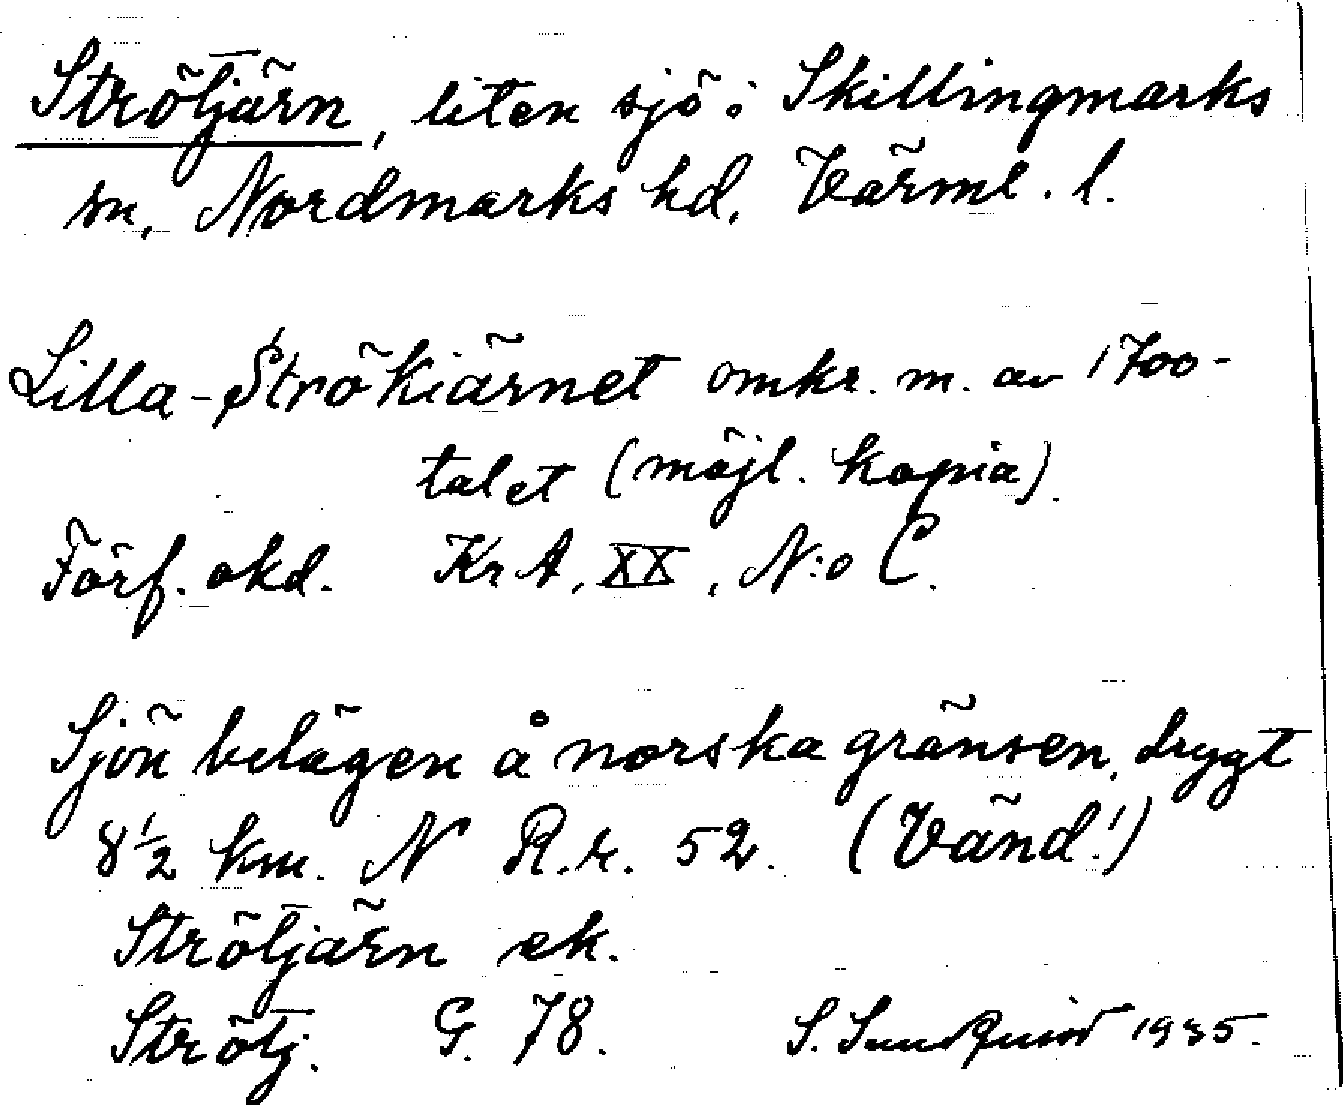 Strötjärn, liten sjö i Skillingmarks
sn, Nordmarks hd, Värml. l.
Lilla-Strökiärnet omkr. m. av 1700-
talet (möjl. kopia).
Förf. okd. KrA, XX, N:o C.
Sjön belägen å norska gränsen, drygt
8 1/2 km. N R.r. 52. (Vänd!)
Strötjärn ek.
Strötj. G. 78. S. Sundquist 1935.